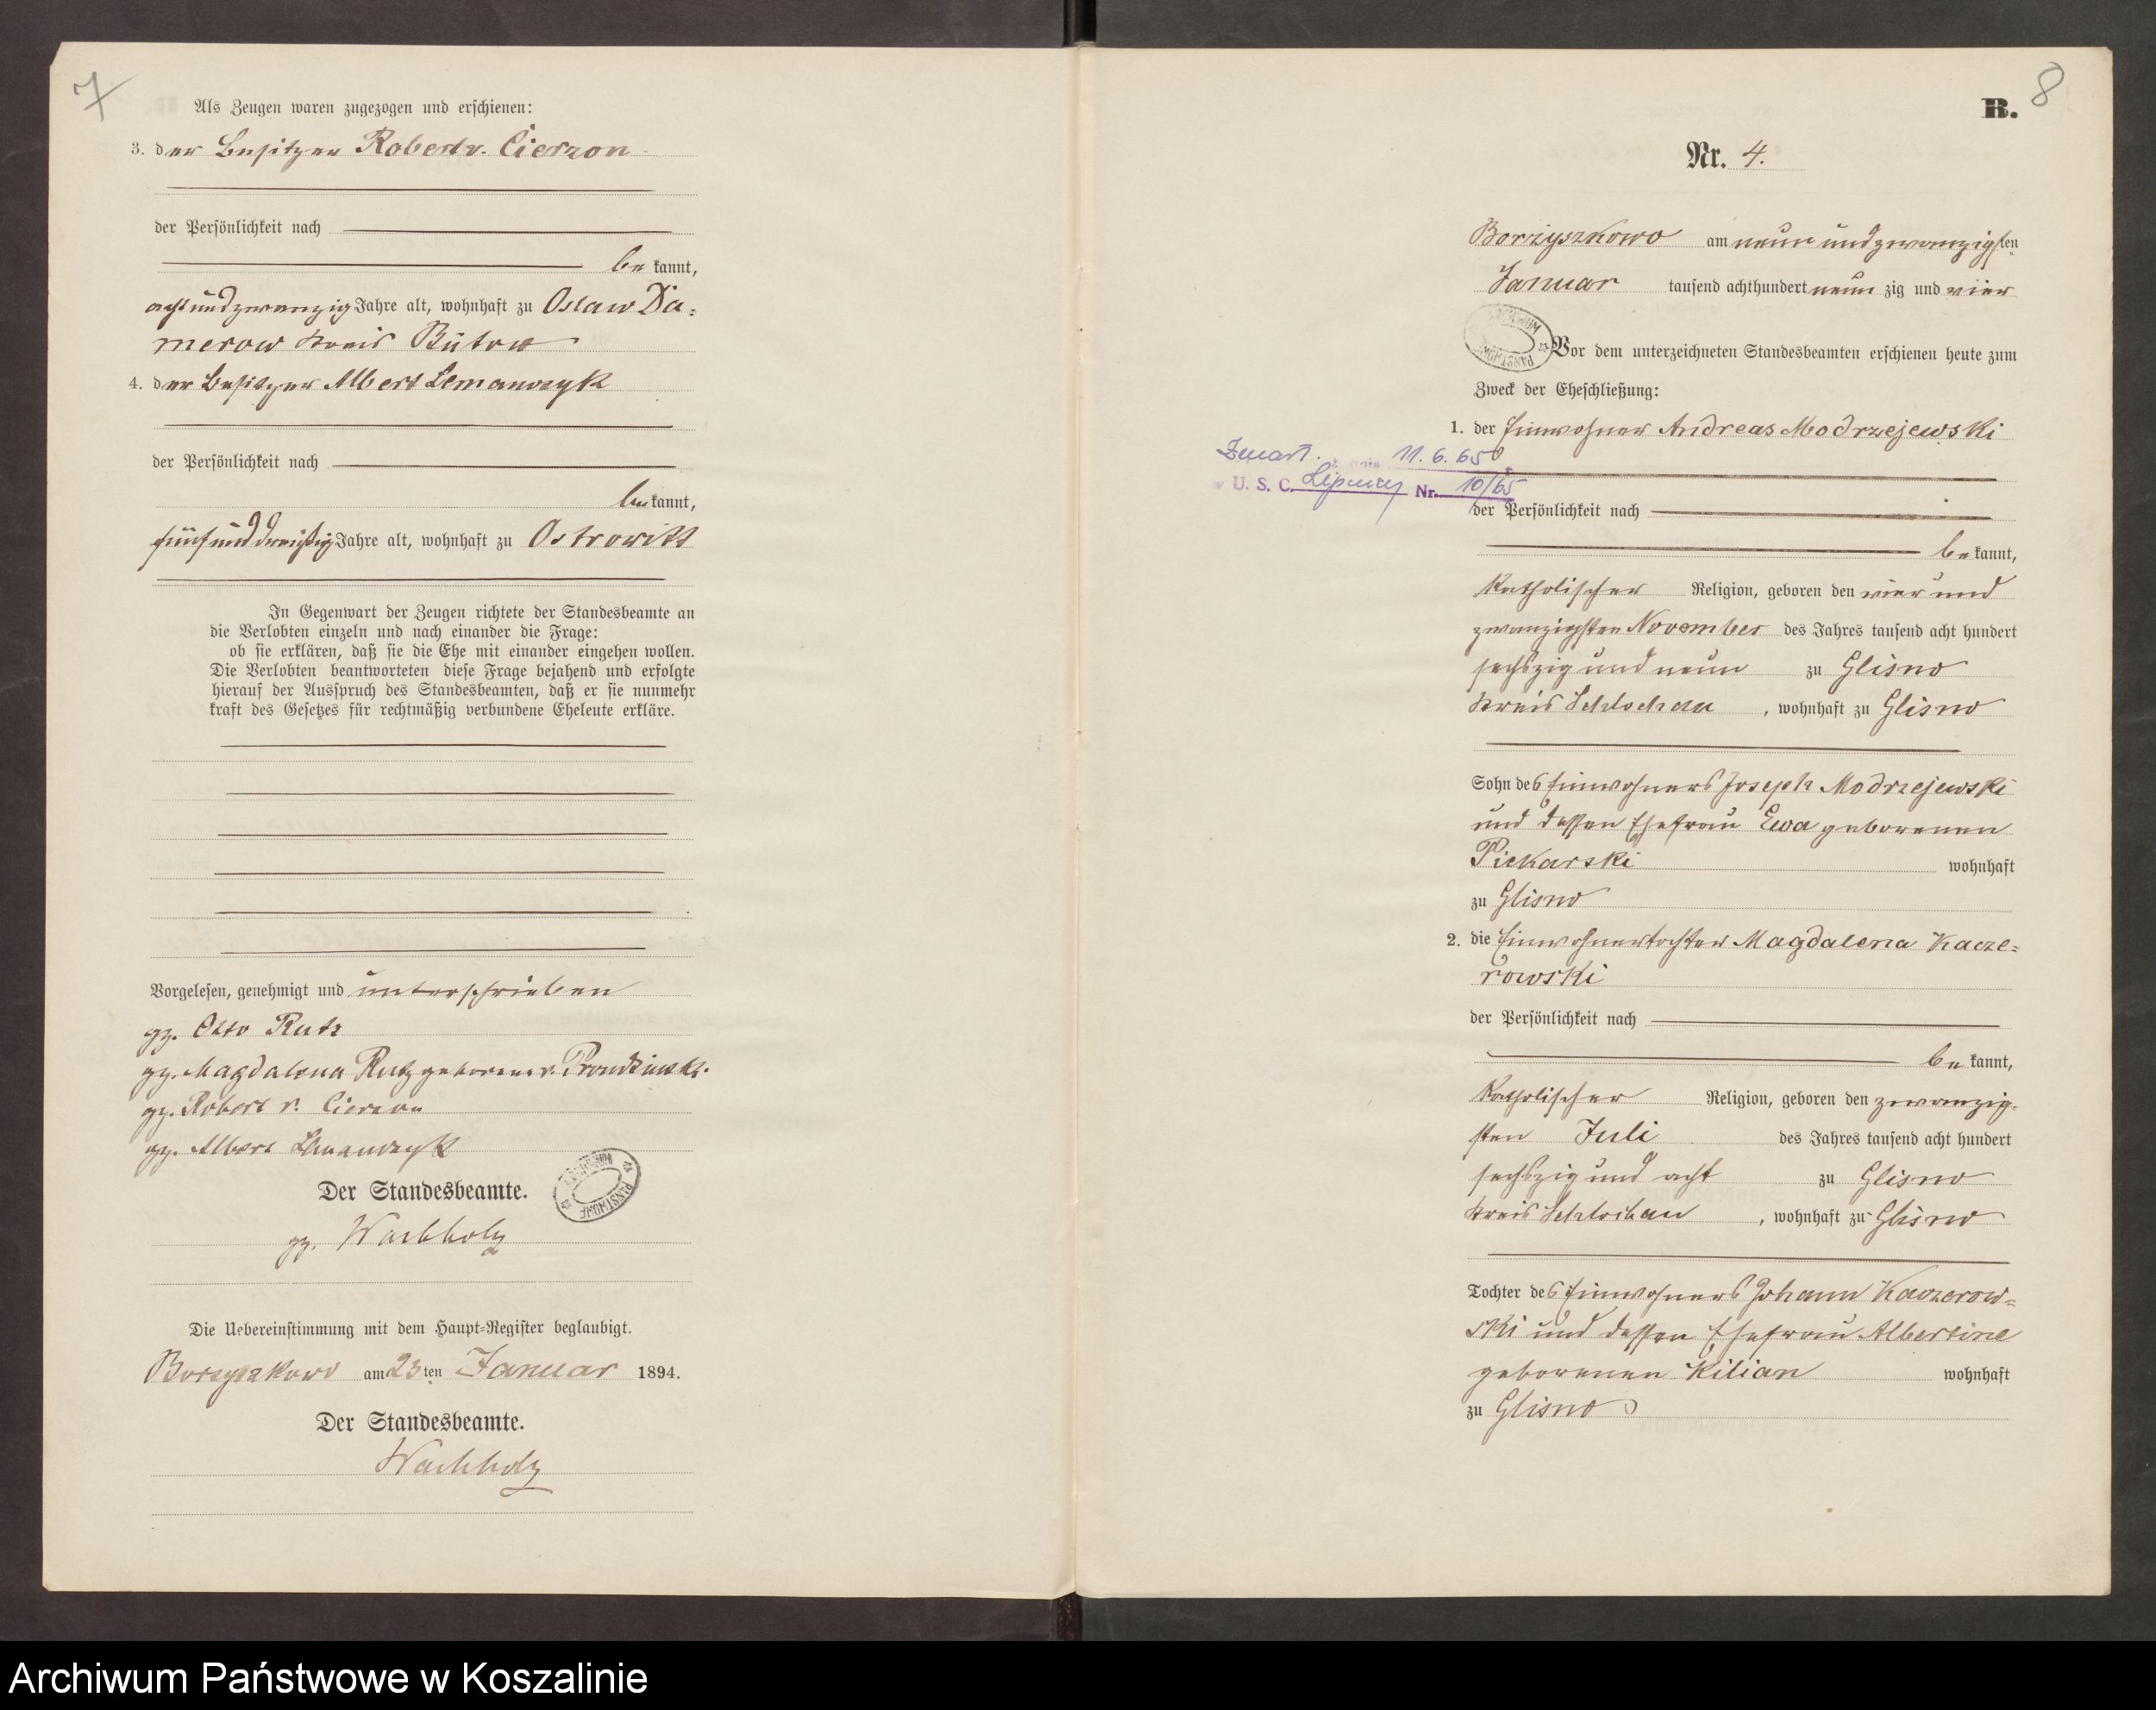 7
Als Zeugen waren zugezogen und erschienen:
3. der Besitzer Robert v. Cierzon
der Persönlichkeit nach
be kannt,
achtundzwanzig Jahre alt, wohnhaft zu Oslaw Da=
merow Kreis Bütow
4. der Besitzer Albert Lemanczyk
der Persönlichkeit nach
be kannt,
fünfunddreißig Jahre alt, wohnhaft zu Ostrowitt
In Gegenwart der Zeugen richtete der Standesbeamte an
die Verlobten einzeln und nach einander die Frage:
ob sie erklären, daß sie die Ehe mit einander eingehen wollen.
Die Verlobten beantworteten diese Frage bejahend und erfolgte
hierauf der Ausspruch des Standesbeamten, daß er sie nunmehr
kraft des Gesetzes für rechtmäßig verbundene Eheleute erkläre.
Vorgelesen, genehmigt und unterschrieben
gz. Otto Rutz
gz. Magdalena Rutz geborene v. Prondzinski
gz. Robert v. Cierzon
gz. Albert Lemanczyk
Der Standesbeamte.
gz. Wachholz
Die Uebereinstimmung mit dem Haupt=Register beglaubigt.
Borzyszkowo am 23 ten Januar 1894.
Der Standesbeamte.
Wachholz
8
B.
Nr. 4.
Borzyszkowo am neun und zwanzigsten
Januar tausend achthundert neun zig und vier
ARCHIWUM PAŃSTWOWE
Vor dem unterzeichneten Standesbeamten erschienen heute zum
Zweck der Eheschließung:
1. der Einwohner Andreas Modrzejewski
Zmarł. dnia 11. 6. 65
U. S. C. Lipnicy Nr. 10/65
der Persönlichkeit nach
be kannt,
katholischer Religion, geboren den vier und
zwanzigsten November des Jahres tausend acht hundert
sechszig und neun zu Glisno
Kreis Schlochau, wohnhaft zu Glisno
Sohn des Einwohners Joseph Modrzejewski
und dessen Ehefrau Ewa geborenen
Piekarski wohnhaft
zu Glisno
2. die Einwohnertochter Magdalena Kacze=
rowski
der Persönlichkeit nach
be kannt,
katholischer Religion, geboren den zwanzig=
sten Juli des Jahres tausend acht hundert
sechszig und acht zu Glisno
Kreis Schlochau, wohnhaft zu Glisno
Tochter des Einwohners Johann Kaczerow=
ski und dessen Ehefrau Albertine
geborenen Kilian wohnhaft
zu Glisno
Archiwum Państwowe w Koszalinie